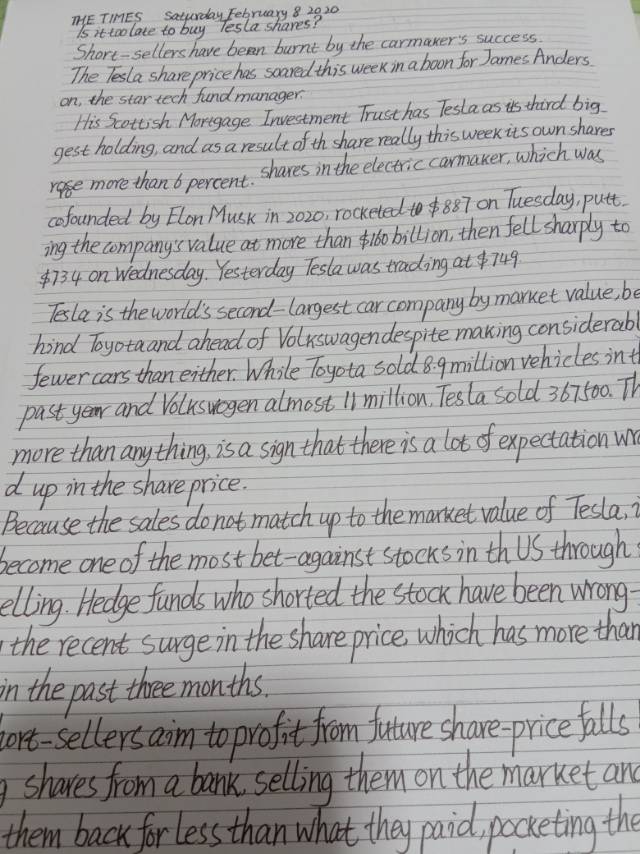 THE TIMES Saturday February 8 2020
Is it too late to buy Tesla shares?
Short-sellers have been burnt by the carmaker's success.
The Tesla share price has soared this week in a boon for James Anders
on, the star tech fund manager.
His Scottish Mortgage Investment Trust has Tesla as its third big-
gest holding, and as a result of th share really this week its own shares
rose more than 6 percent. shares in the electric carmaker, which was
cofounded by Elon Musk in 2020, rocketed to $887 on Tuesday, putt-
ing the company's value at more than $160 billion, then fell sharply to
$734 on Wednesday. Yesterday Tesla was trading at $749.
Tesla is the world's second-largest car company by market value, be
hind Toyota and ahead of Volkswagen despite making considerabl
fewer cars than either. While Toyota sold 8.9 million vehicles in t
past year and Volkswogen almost 11 million, Tesla sold 367500. Th
more than anything, is a sign that there is a lot of expectation wra
d up in the share price.
Because the sales do not match up to the market value of Tesla, i
become one of the most bet-against stocks in th US through s
elling. Hedge funds who shorted the stock have been wrong-
the recent surge in the share price, which has more than
in the past three months.
hort-sellers aim to profit from future share-price falls
g shares from a bank, selling them on the market and
them back for less than what they paid, pocketing the